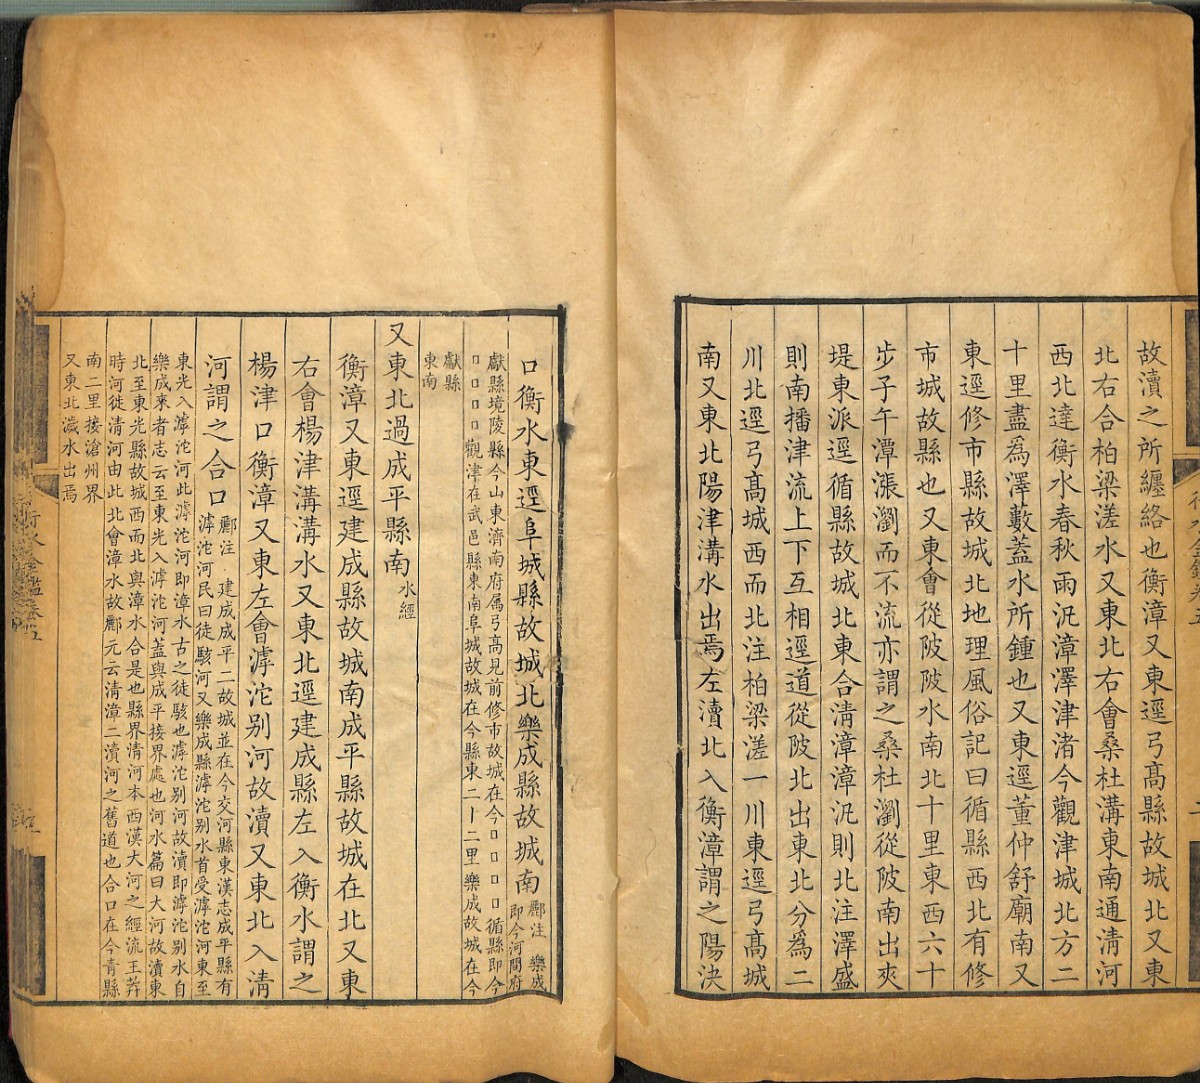 故瀆之所纏絡也衡漳又東逕弓高縣故城北又東
北右合柏梁溠水又東北右會桑杜溝東南通清河
西北達衡水春秋雨汎漳澤津渚今觀津城北方二
十里盡爲澤藪蓋水所鍾也又東逕董仲舒廟南又
東逕修市縣故城北地理風俗記曰循縣西北有修
市城故縣也又東會從陂陂水南北十里東西六十
步子午潭漲瀏而不流亦謂之桑杜瀏從陂南出夾
堤東派逕循縣故城北東合清漳漳汎則北注澤盛
則南播津流上下互相逕道從陂北出東北分爲二
川北逕弓高城西而北注柏梁溠一川東逕弓高城
南又東北陽津溝水出焉左瀆北入衡漳謂之陽決
口衡水東逕阜城縣故城北樂成縣故城南酈注 樂成
即今河間府
獻縣境陵縣今山東濟南府属弓高見前修市故城在今口口口口循縣即今
口口口口觀津在武邑縣東南阜城故城在今縣東二十二里樂成故城在今
獻縣
東南
又東北過成平縣南水經
衡漳又東逕建成縣故城南成平縣故城在北又東
右會楊津溝溝水又東北逕建成縣左入衡水謂之
楊津口衡漳又東左會滹沱别河故瀆又東北入清
河謂之合口酈注 建成成平二故城並在今交河縣東漢志成平縣有
滹沱河民曰徒駭河又樂成縣滹沱别水首受滹沱河東至
東光入滹沱河此滹沱河即漳水古之徒駭也滹沱别河故瀆即滹沱别水自
樂成來者志云至東光入滹沱河蓋與成平接界處也河水篇曰大河故瀆東
北至東光縣故城西而北與漳水合是也縣界清河本西漢大河之經流王莽
時河徙清河由此北會漳水故酈元云清漳二瀆河之舊道也合口在今青縣
南二里接滄州界
又東北濊水出焉